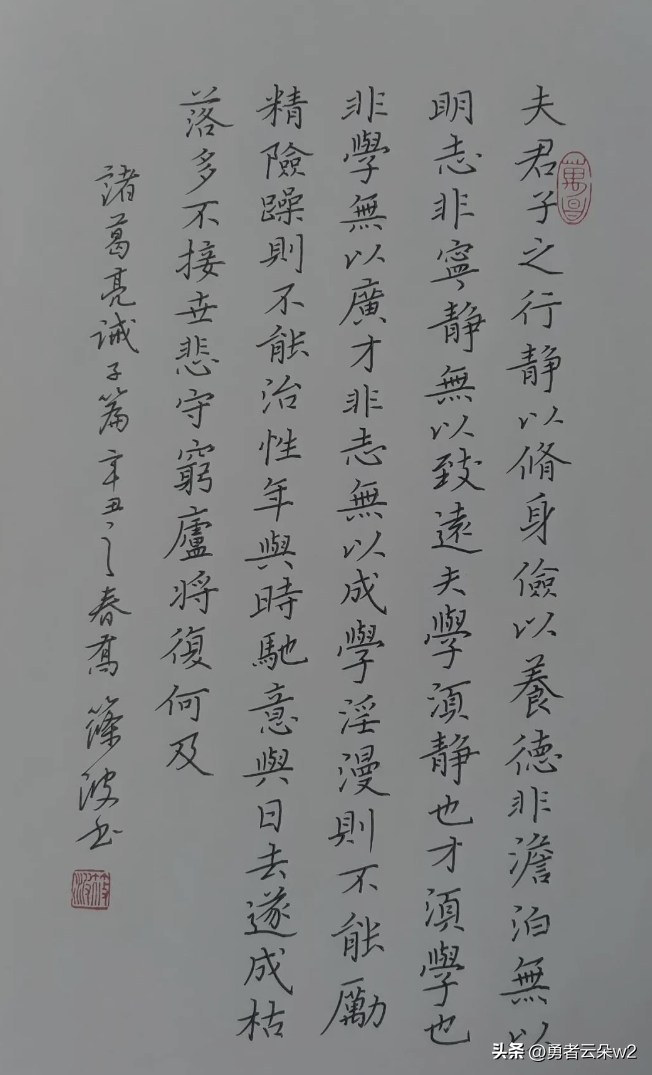 夫君子之行静以脩身儉以養德非澹泊無以
明志非寧静無以致遠夫學須静也才須學也
非學無以廣才非志無以成學淫漫則不能勵
精險躁則不能治性年與時馳意與日去遂成枯
落多不接世悲守窮廬將復何及
諸葛亮誡子篇辛丑之春嵩篠波书
头条 @勇者云朵w2